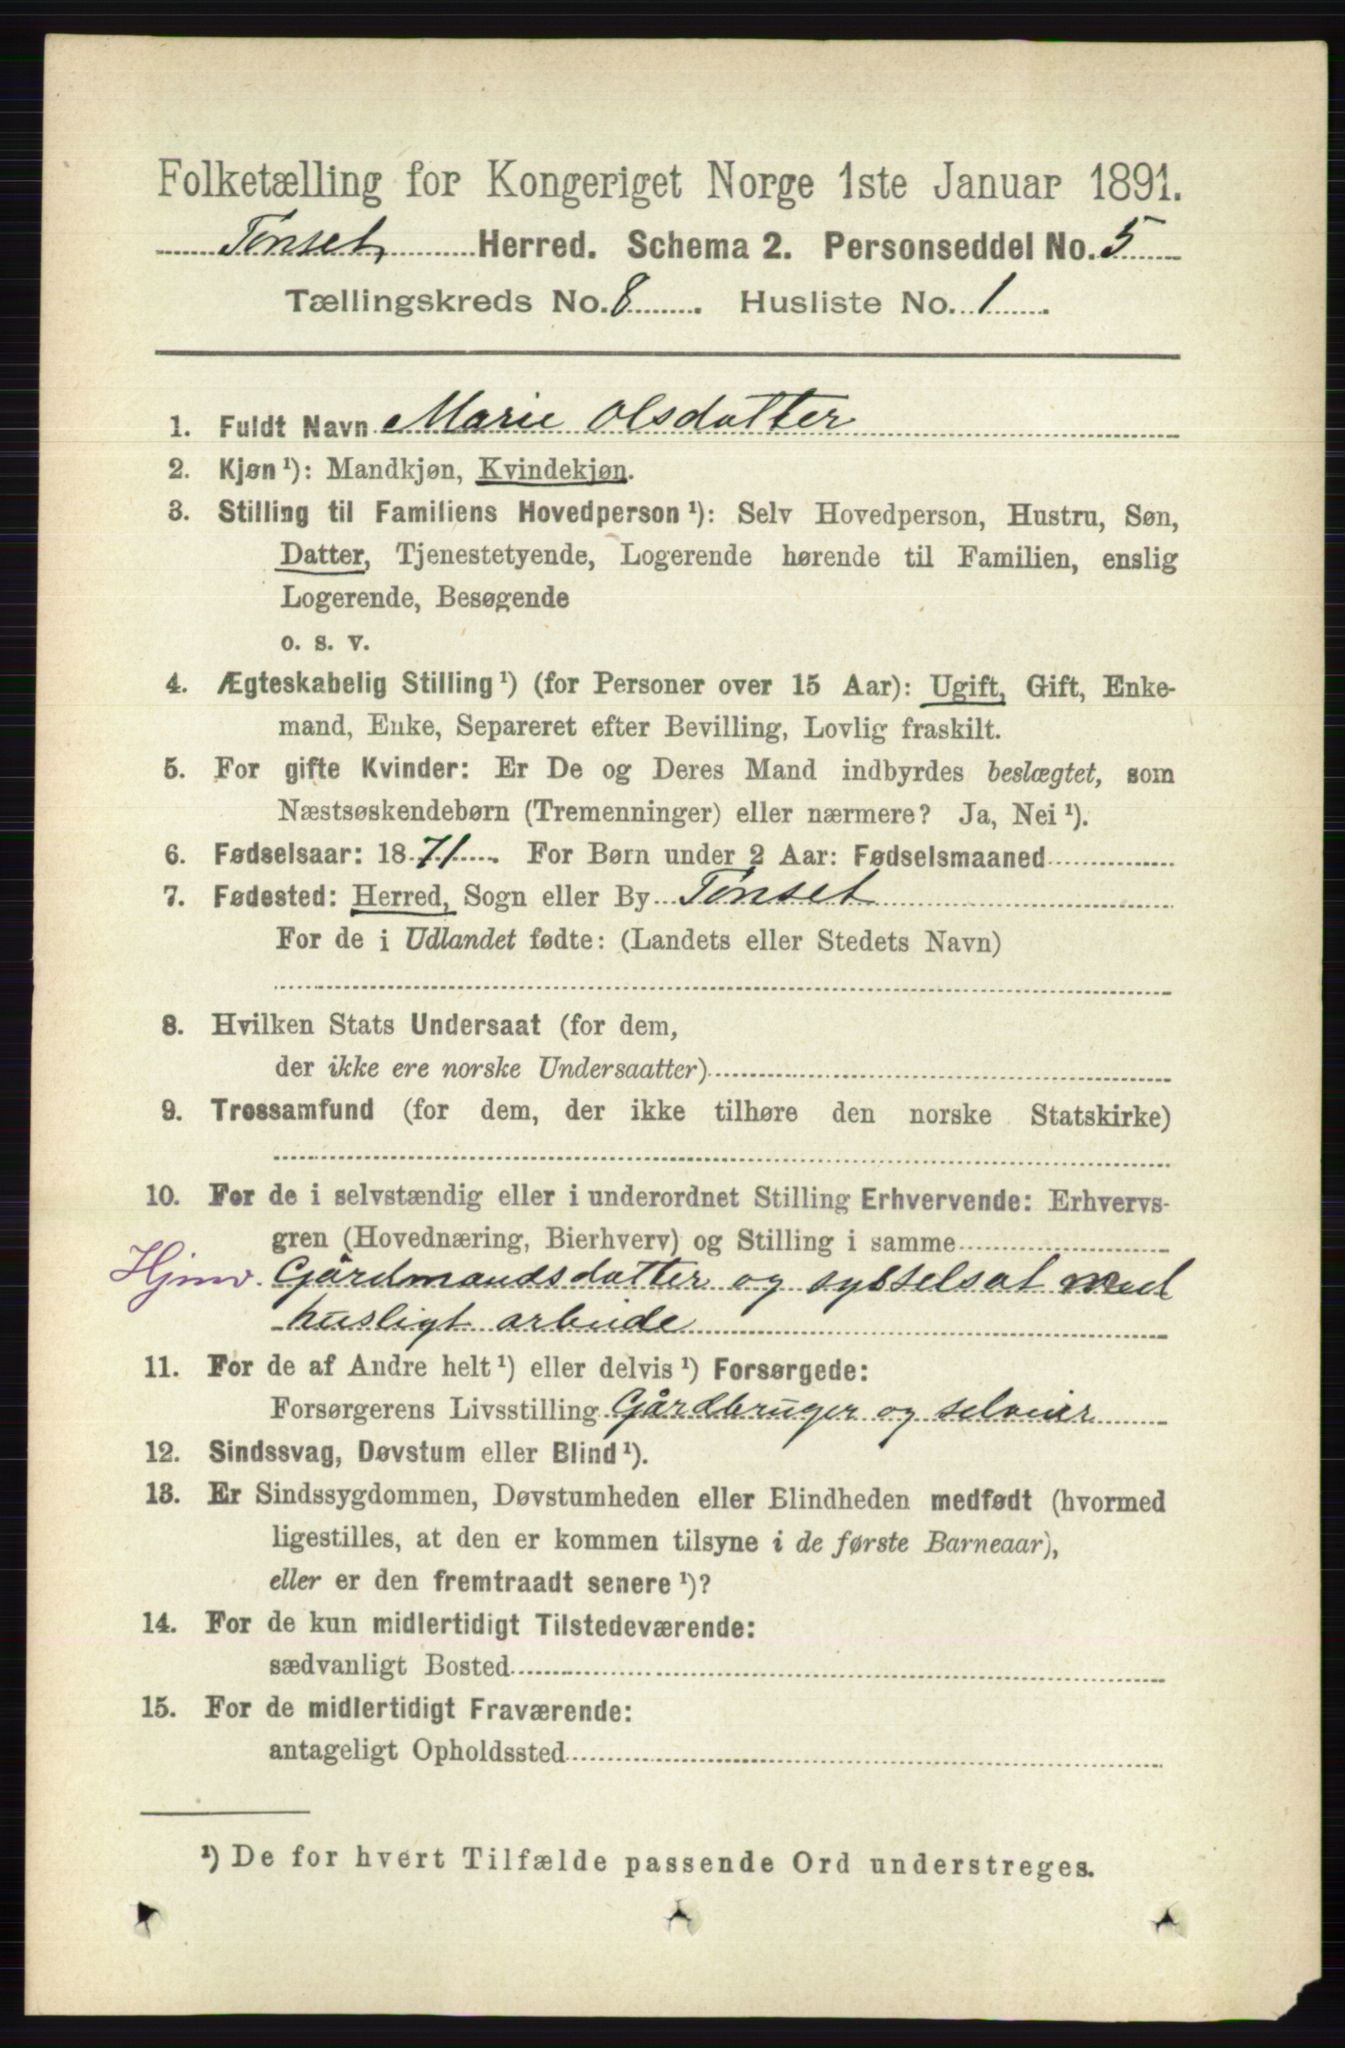 Folketælling for Kongeriget Norge 1ste Januar 1891.
Tønset, Herred. Schema 2. Personseddel No. 5
Tællingskreds No. 8. Husliste No. 1.
1. Fuldt Navn Marie Olsdatter
2. Kjøn ¹): Mandkjøn, Kvindekjøn.
3. Stilling til Familiens Hovedperson ¹): Selv Hovedperson, Hustru, Søn,
Datter, Tjenestetyende, Logerende hørende til Familien, enslig
Logerende, Besøgende
o. s. v.
4. Ægteskabelig Stilling ¹) (for Personer over 15 Aar): Ugift, Gift, Enke-
mand, Enke, Separeret efter Bevilling, Lovlig fraskilt.
5. For gifte Kvinder: Er De og Deres Mand indbyrdes beslægtet, som
Næstsøskendebørn (Tremenninger) eller nærmere? Ja, Nei ¹).
6. Fødselsaar: 1871. For Børn under 2 Aar: Fødselsmaaned
7. Fødested: Herred, Sogn eller By Tønset
For de i Udlandet fødte: (Landets eller Stedets Navn)
8. Hvilken Stats Undersaat (for dem,
der ikke ere norske Undersaatter)
9. Trossamfund (for dem, der ikke tilhøre den norske Statskirke)
10. For de i selvstændig eller i underordnet Stilling Erhvervende: Erhvervs-
gren (Hovednæring, Bierhverv) og Stilling i samme
Hjmv. Gårdmandsdatter og sysselsat med
husligt arbeide
11. For de af Andre helt ¹) eller delvis ¹) Forsørgede:
Forsørgerens Livsstilling Gårdbruger og selveier
12. Sindssvag, Døvstum eller Blind ¹).
13. Er Sindssygdommen, Døvstumheden eller Blindheden medfødt (hvormed
ligestilles, at den er kommen tilsyne i de første Barneaar),
eller er den fremtraadt senere ¹)?
14. For de kun midlertidigt Tilstedeværende:
sædvanligt Bosted
15. For de midlertidigt Fraværende:
antageligt Opholdssted
¹) De for hvert Tilfælde passende Ord understreges.